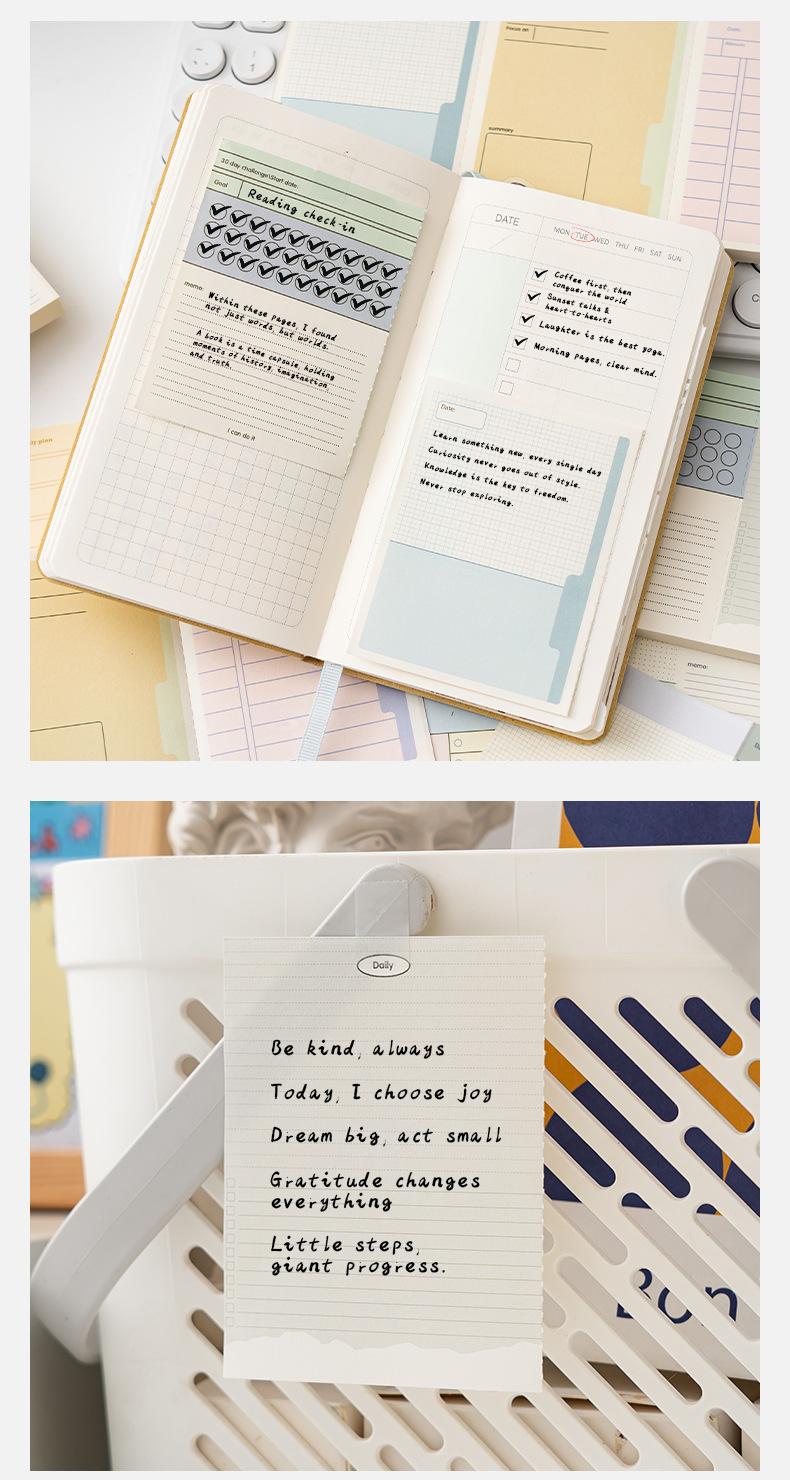 Focus on:
summary
30 day challenge\Start date:
Goal
Reading check-in
memo:
Within these pages, I found
not just words, but worlds.
A book is a time capsule, holding
moments of history, imagination
and truth.
I can do it
DATE
MON TUE WED THU FRI SAT SUN
Coffee first, then
conquer the world
Sunset talks &
heart-to-hearts
Laughter is the best yoga.
Morning pages, clear mind.
Date:
Learn something new, every single day
Curiosity never goes out of style.
Knowledge is the key to freedom.
Never stop exploring.
plan
memo:
Daily
Be kind, always
Today, I choose joy
Dream big, act small
Gratitude changes
everything
Little steps,
giant progress.
Bon